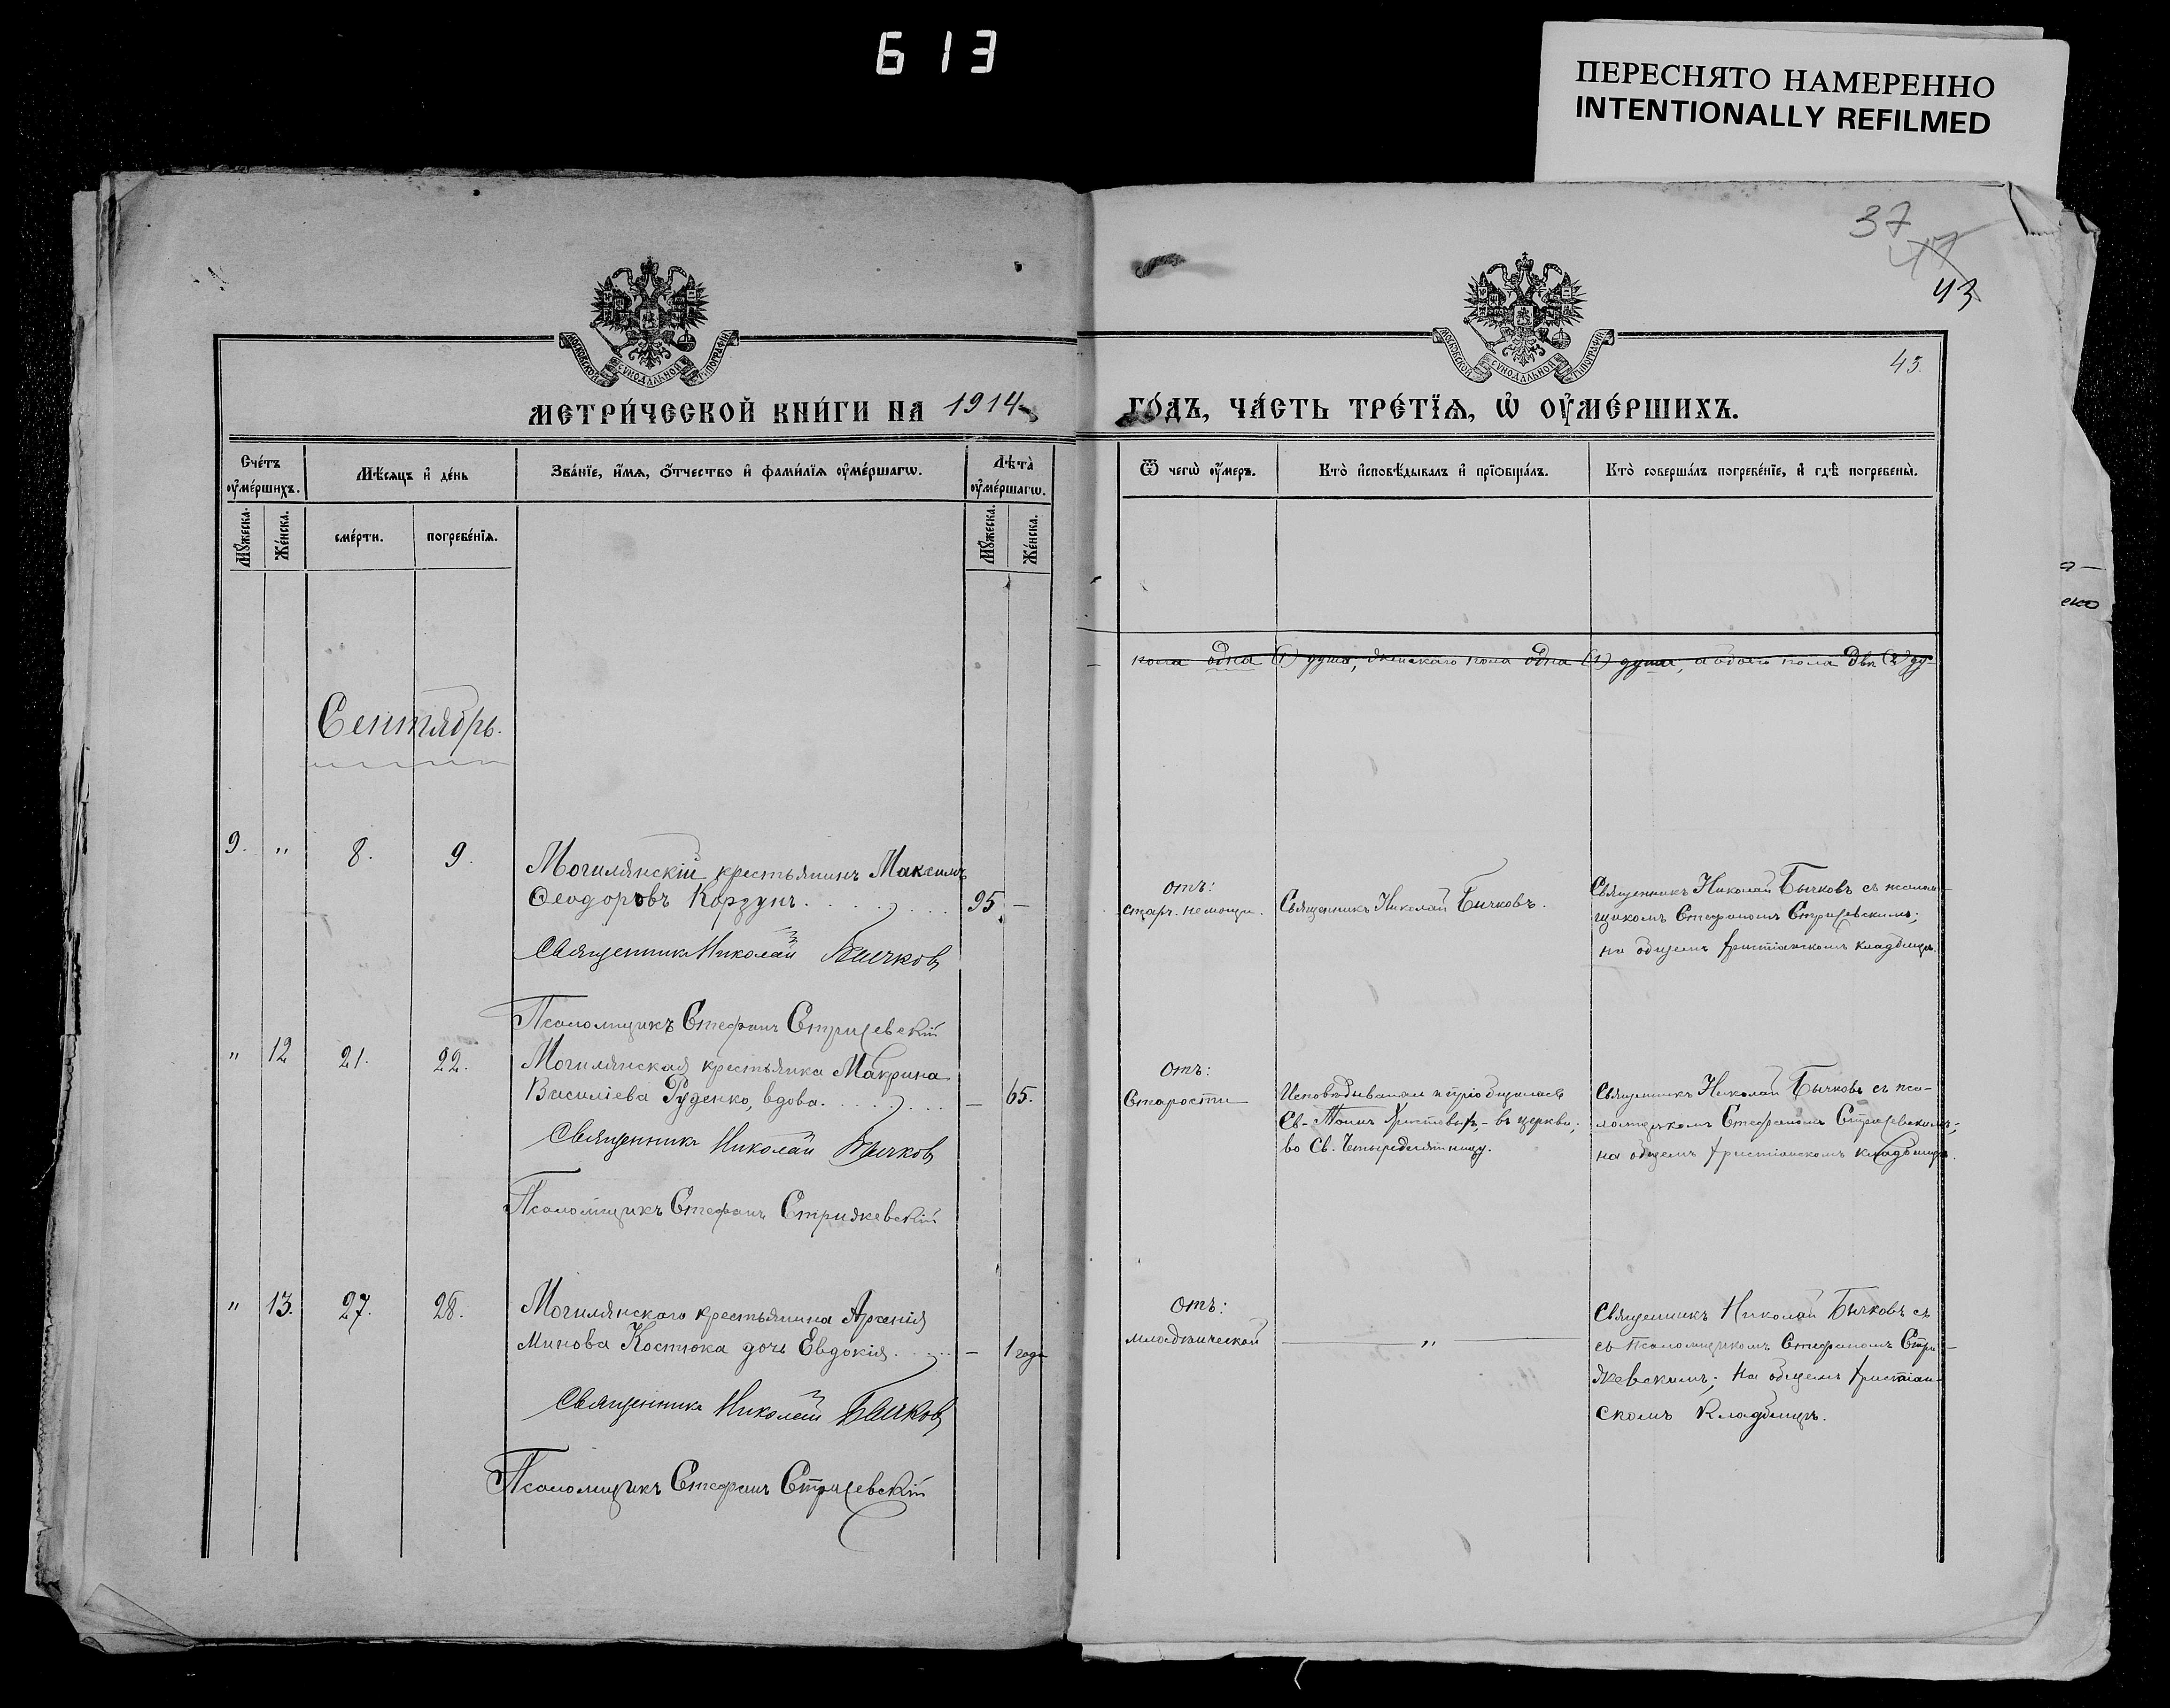 613
ПЕРЕСНЯТО НАМЕРЕННО
INTENTIONALLY REFILMED
37
47
43
43.
МОСКОВСКОЙ СѴНОДАЛЬНОЙ ТИПОГРАФІИ
МОСКОВСКОЙ СѴНОДАЛЬНОЙ ТИПОГРАФІИ
МЕТРИ́ЧЕСКОЙ КНИ́ГИ НА 1914
ГО́ДЪ, ЧА́СТЬ ТРЕ́ТЇѦ, Ѡ҆ ОУ҆МЕ́РШИХЪ.
Сче́тъ оу҆ме́ршихъ.
Мѣ́сяцъ и҆ де́нь
Зва́нїе, и҆́мѧ, ѻ҆́тчество и҆ фами́лїѧ оу҆ме́ршагѡ.
Лѣ́та оу҆ме́ршагѡ.
Ѿ чегѡ̀ оу҆́меръ.
Кто̀ и҆сповѣ́дывалъ и҆ прїѡбща́лъ.
Кто̀ соверша́лъ погребе́нїе, и҆ гдѣ̀ погребены̀.
Мꙋ́жеска.
Же́нска.
сме́рти.
погребе́нїѧ.
Мꙋ́жеска.
Же́нска.
пола одна (1) душа, женскаго пола одна (1) душа, а обоего пола двѣ (2) ду-
Сентябрь.
9. " 8. 9.
Могилянскій крестьянинъ Максимъ
Ѳеодоровъ Корзунъ. 95. —
Священникъ Николай Бычковъ
Псаломщикъ Стефанъ Стрижевскій
отъ:
старч. немощи.
Священникъ Николай Бычковъ.
Священникъ Николай Бычковъ съ псалом-
щикомъ Стефаномъ Стрижевскимъ;
на общемъ христіанскомъ кладбищѣ.
" 12 21. 22.
Могилянская крестьянка Макрина
Василіева Руденко, вдова. — 65.
Священникъ Николай Бычковъ
Псаломщикъ Стефанъ Стрижевскій
отъ:
Старости
Исповѣдывалась и пріобщалась
Св. Таинъ Христовыхъ, - въ церкви;
во Св. Четыредесятницу.
Священникъ Николай Бычковъ съ пса-
ломщикомъ Стефаномъ Стрижевскимъ;
на общемъ христіанскомъ кладбищѣ.
" 13. 27. 28.
Могилянскаго крестьянина Арсенія
Минова Костюка дочь Евдокія — 1 года
Священникъ Николай Бычковъ
Псаломщикъ Стефанъ Стрижевскій
отъ:
младенческой
"
Священникъ Николай Бычковъ съ
съ Псаломщикомъ Стефаномъ Стри-
жевскимъ; на общемъ христіан-
скомъ кладбищѣ.